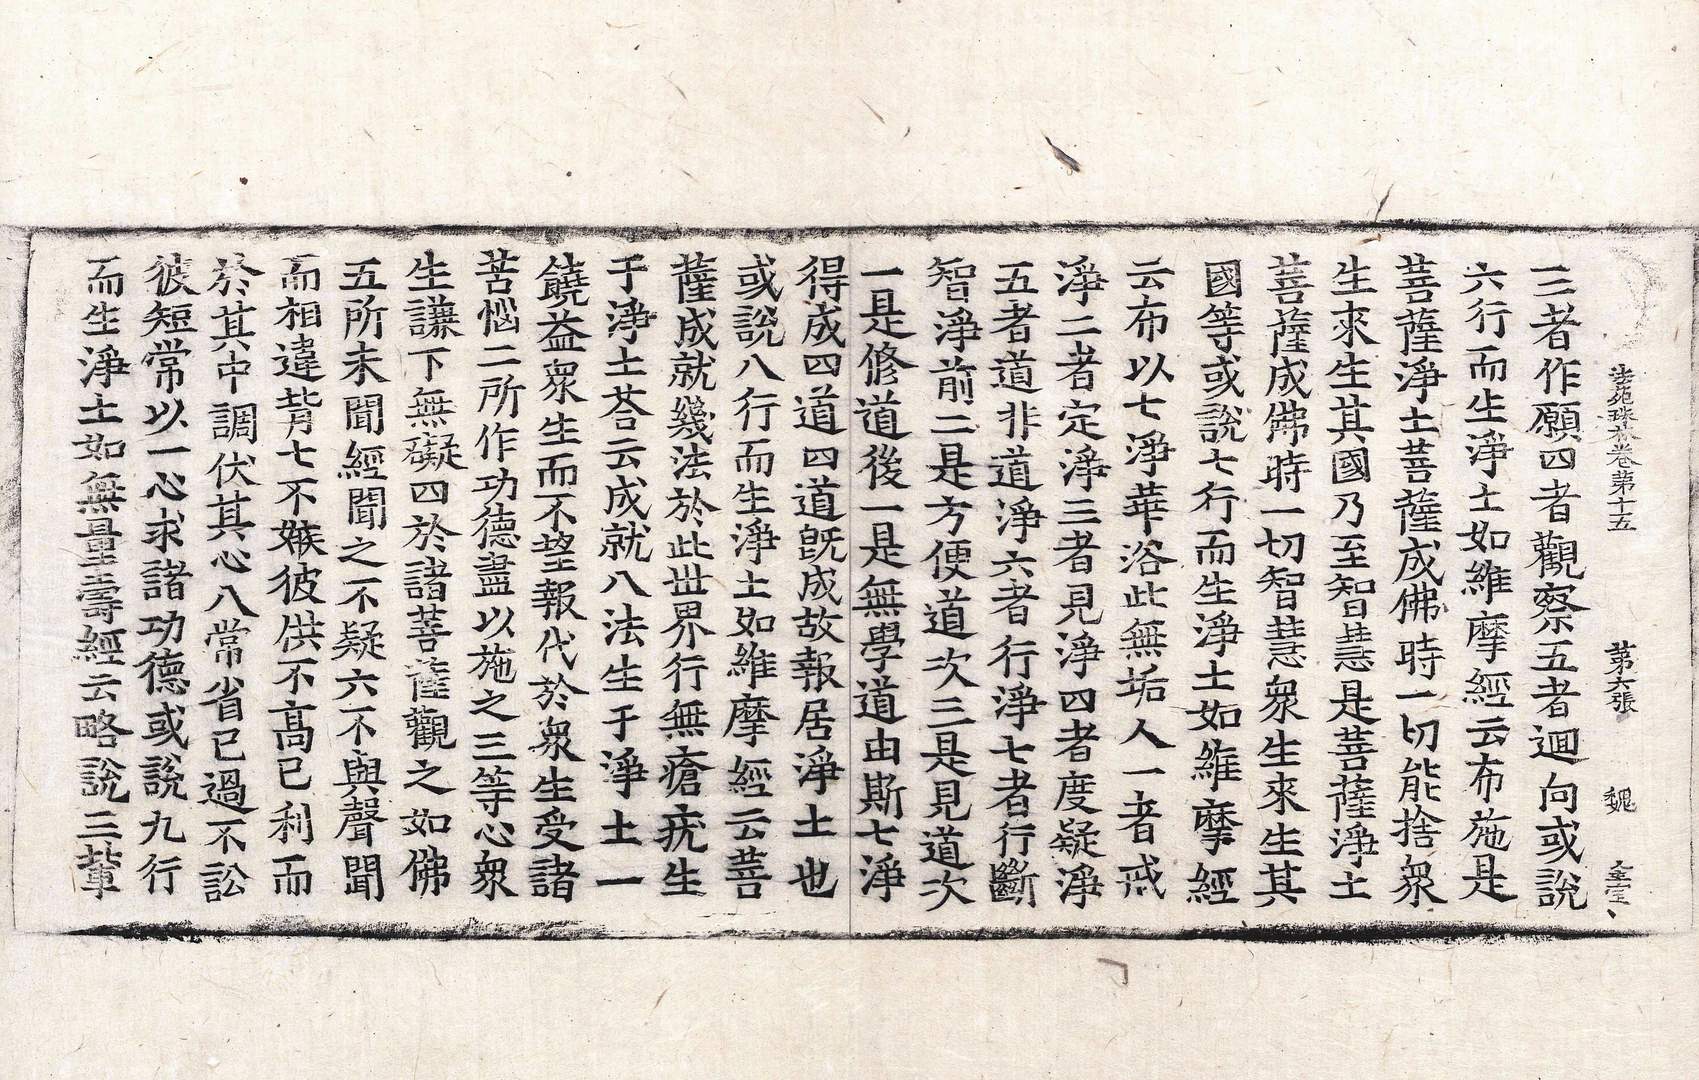 法苑珠林卷第十五　第六張　魏
三者作願四者觀察五者迴向或說
六行而生淨土如維摩經云布施是
菩薩淨土菩薩成佛時一切能捨衆
生來生其國乃至智慧是菩薩淨土
菩薩成佛時一切智慧衆生來生其
國等或說七行而生淨土如維摩經
云布以七淨華浴此無垢人一者戒
淨二者定淨三者見淨四者度疑淨
五者道非道淨六者行淨七者行斷
智淨前二是方便道次三是見道次
一是修道後一是無學道由斯七淨
得成四道四道旣成故報居淨土也
或說八行而生淨土如維摩經云菩
薩成就幾法於此世界行無瘡疣生
于淨土荅云成就八法生于淨土一
饒益衆生而不望報代於衆生受諸
苦惱二所作功德盡以施之三等心衆
生謙下無礙四於諸菩薩觀之如佛
五所未聞經聞之不疑六不與聲聞
而相違背七不嫉彼供不高已利而
於其中調伏其心八常省已過不訟
彼短常以一心求諸功德或說九行
而生淨土如無量壽經云略說三輩